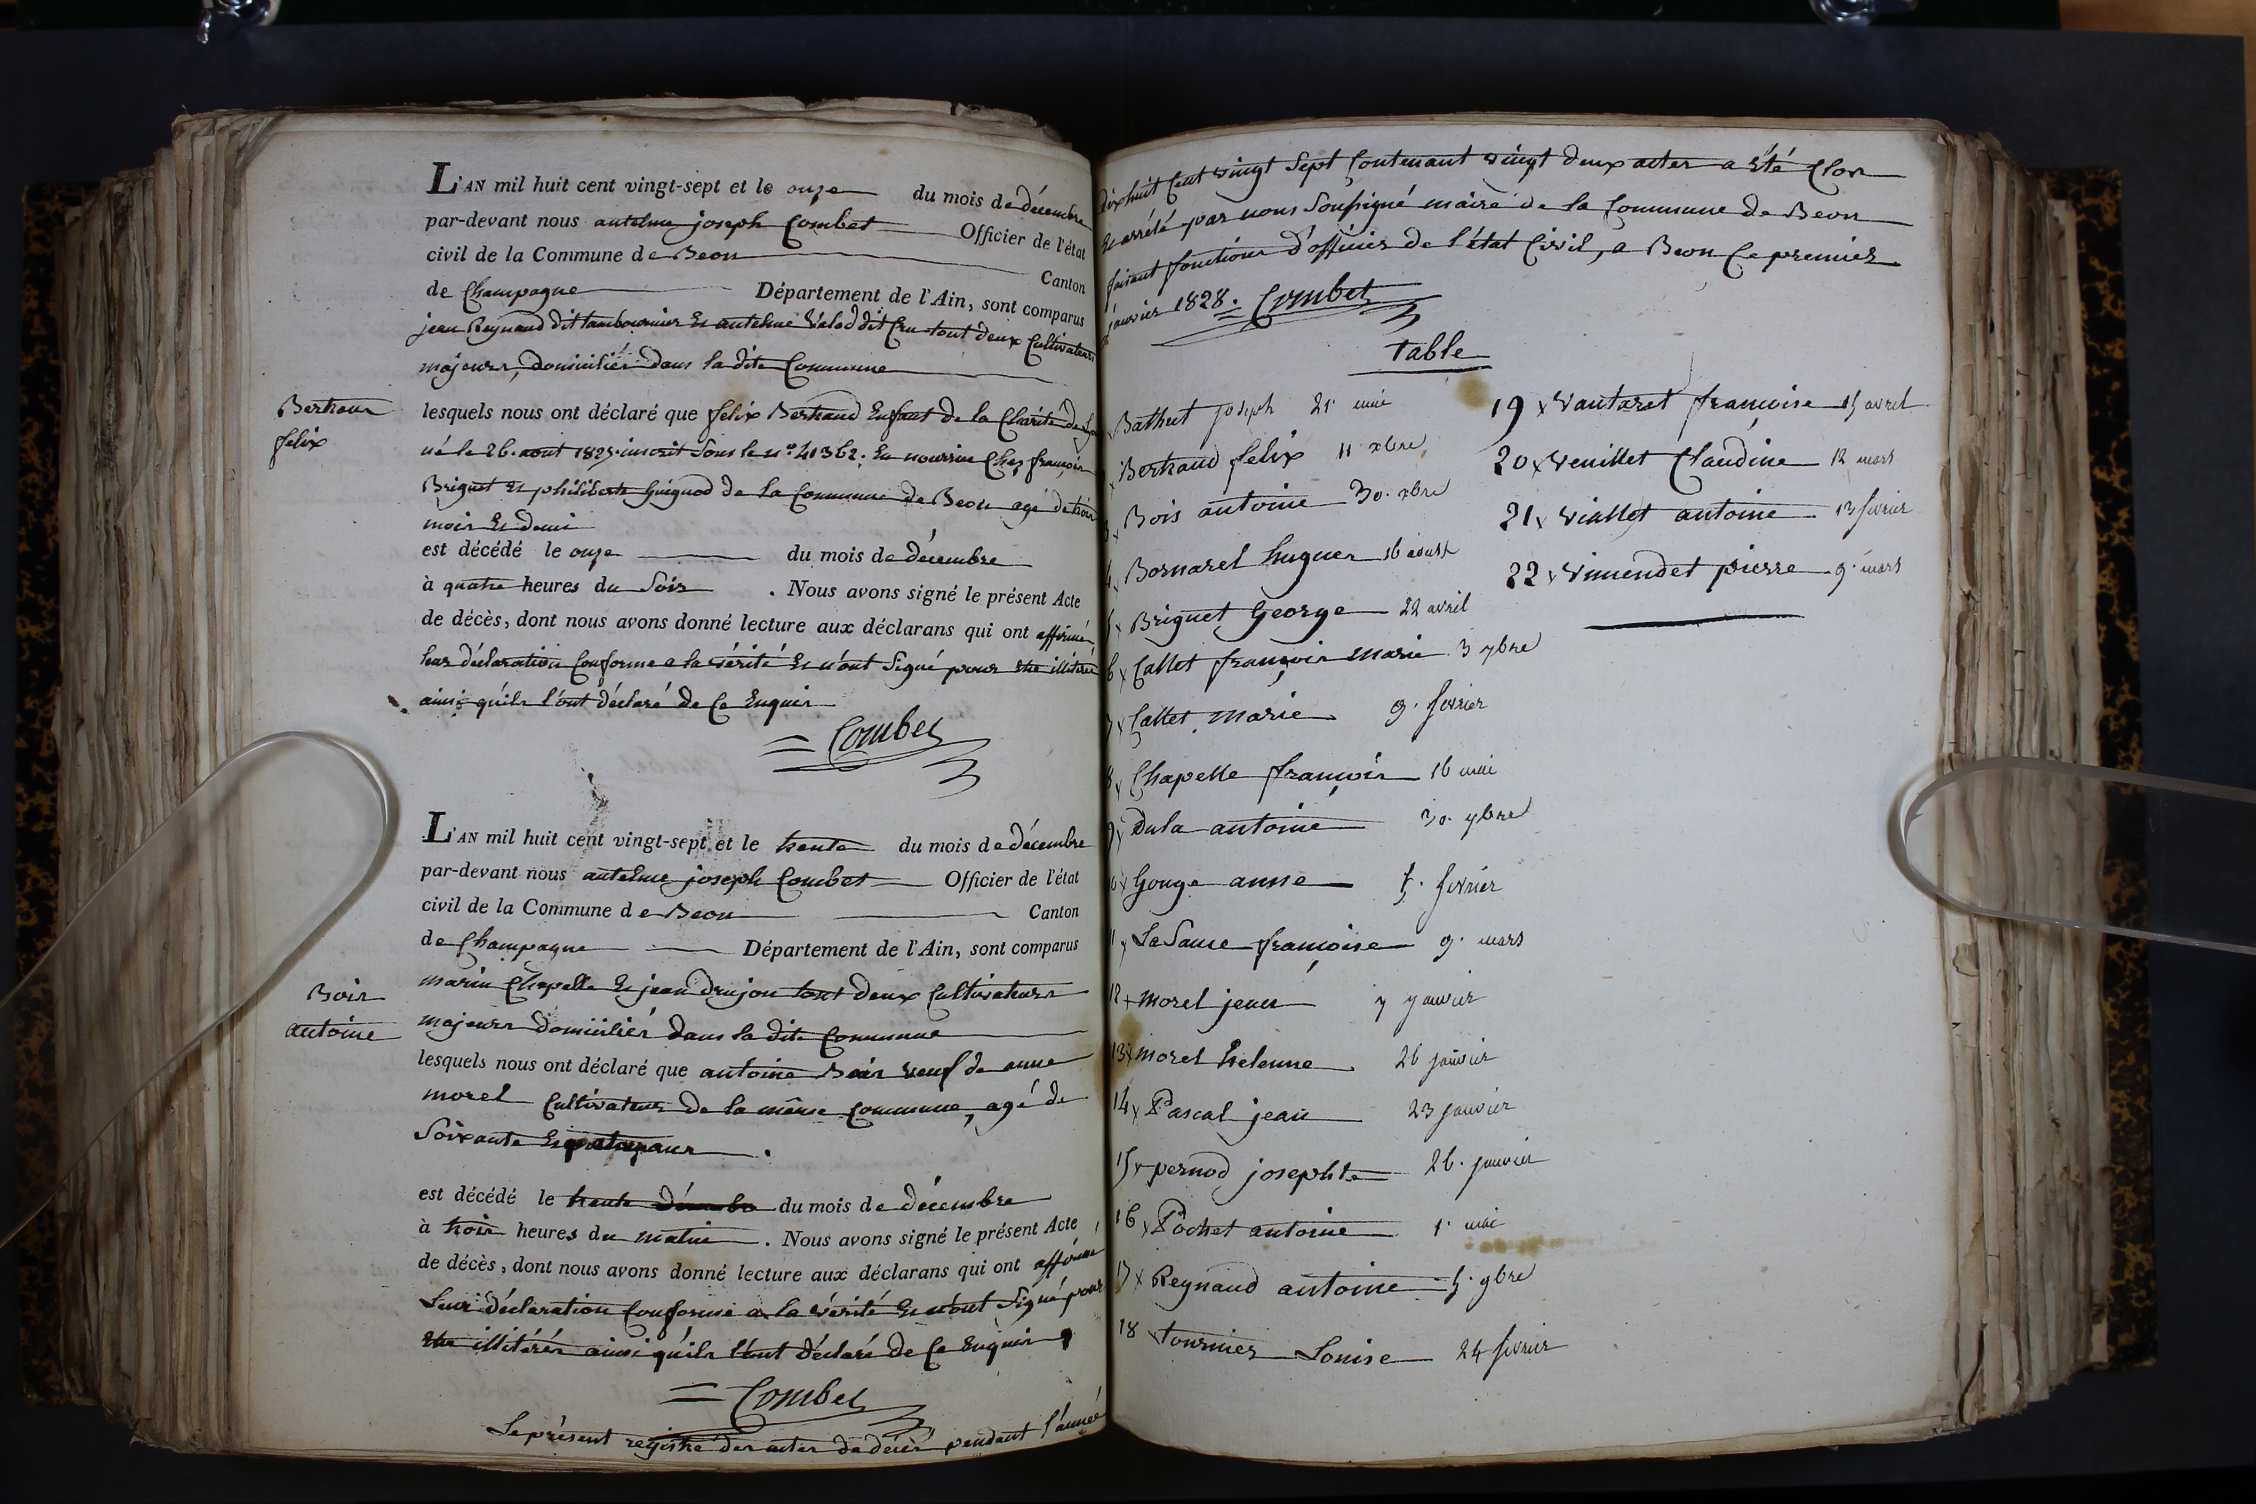 L'AN mil huit cent vingt-sept et le onze du mois de décembre
par-devant nous antelme joseph Combet Officier de l'état
civil de la Commune de Beon Canton
de Champagne Département de l'Ain, sont comparus
jean Reynaud dit tambournier et antelme Valod dit Cru tout deux Cultivateurs
majeurs, domiciliés dans la dite Commune
Bertrand
felix
lesquels nous ont déclaré que felix Bertrand Enfant de la Charité de
né le 26. aout 1827. inscrit sous le n° 41362. En nourrice Chez françois
Briguet et philiberte Guignod de la Commune de Beon agé de trois
mois et demi
est décédé le onze du mois de décembre
à quatre heures du Soir . Nous avons signé le présent Acte
de décès, dont nous avons donné lecture aux déclarans qui ont affirmé
leur déclaration Conforme a la vérité et n'ont Signé pour etre illitérés
ainsi qu'ils l'ont déclaré de Ce Enquis
Combet
L'AN mil huit cent vingt-sept et le trente du mois de décembre
par-devant nous antelme joseph Combet Officier de l'état
civil de la Commune de Beon Canton
de Champagne Département de l'Ain, sont comparus
marin Chapelle et jean Drujon tout deux Cultivateurs
majeurs domiciliés dans la dite Commune
Bois
antoine
lesquels nous ont déclaré que antoine Bois veuf de anne
morel Cultivateur de la même Commune, agé de
Soixante et quatre ans .
est décédé le trente décembre du mois de décembre
à trois heures du matin . Nous avons signé le présent Acte
de décès, dont nous avons donné lecture aux déclarans qui ont affirmé
leur déclaration Conforme a la vérité et n'ont Signé pour
etre illitérés ainsi qu'ils l'ont déclaré de Ce Enquis
Combet
Le présent registre des actes de décès pendant l'année
dix huit Cent vingt Sept Contenant vingt deux actes a été Clos
et arrété par nous Soussigné maire de la Commune de Beon
faisant fonctions d'officier de l'état Civil, a Beon Ce premier
janvier 1828. Combet
table
Bathut joseph 21 mai
Bertrand felix 11 xbre
Bois antoine 30. xbre
4 x Bornarel hugues 16 aoust
5 x Briguet George 22 avril
6 x Callet françois marie 3 7bre
7 x Callet marie 9. fevrier
8 x Chapelle françois 16 mai
9 x Dula antoine 30. 7bre
10 x Gouge anne 5. fevrier
11 x LaSauce françoise 9. mars
12 x morel jean 7 janvier
13 x morel helenne 26 janvier
14 x Pascal jean 23 janvier
15 x pernod josephte 26. janvier
16 x Pochet antoine 1. mai
17 x Reynaud antoine 5. 9bre
18 x tournier Louise 24 fevrier
19 x Vautaret françoise 15 avril
20 x Veuillet Claudine 12 mars
21 x Viallet antoine 13 fevrier
22 x Vimendet pierre 9. mars